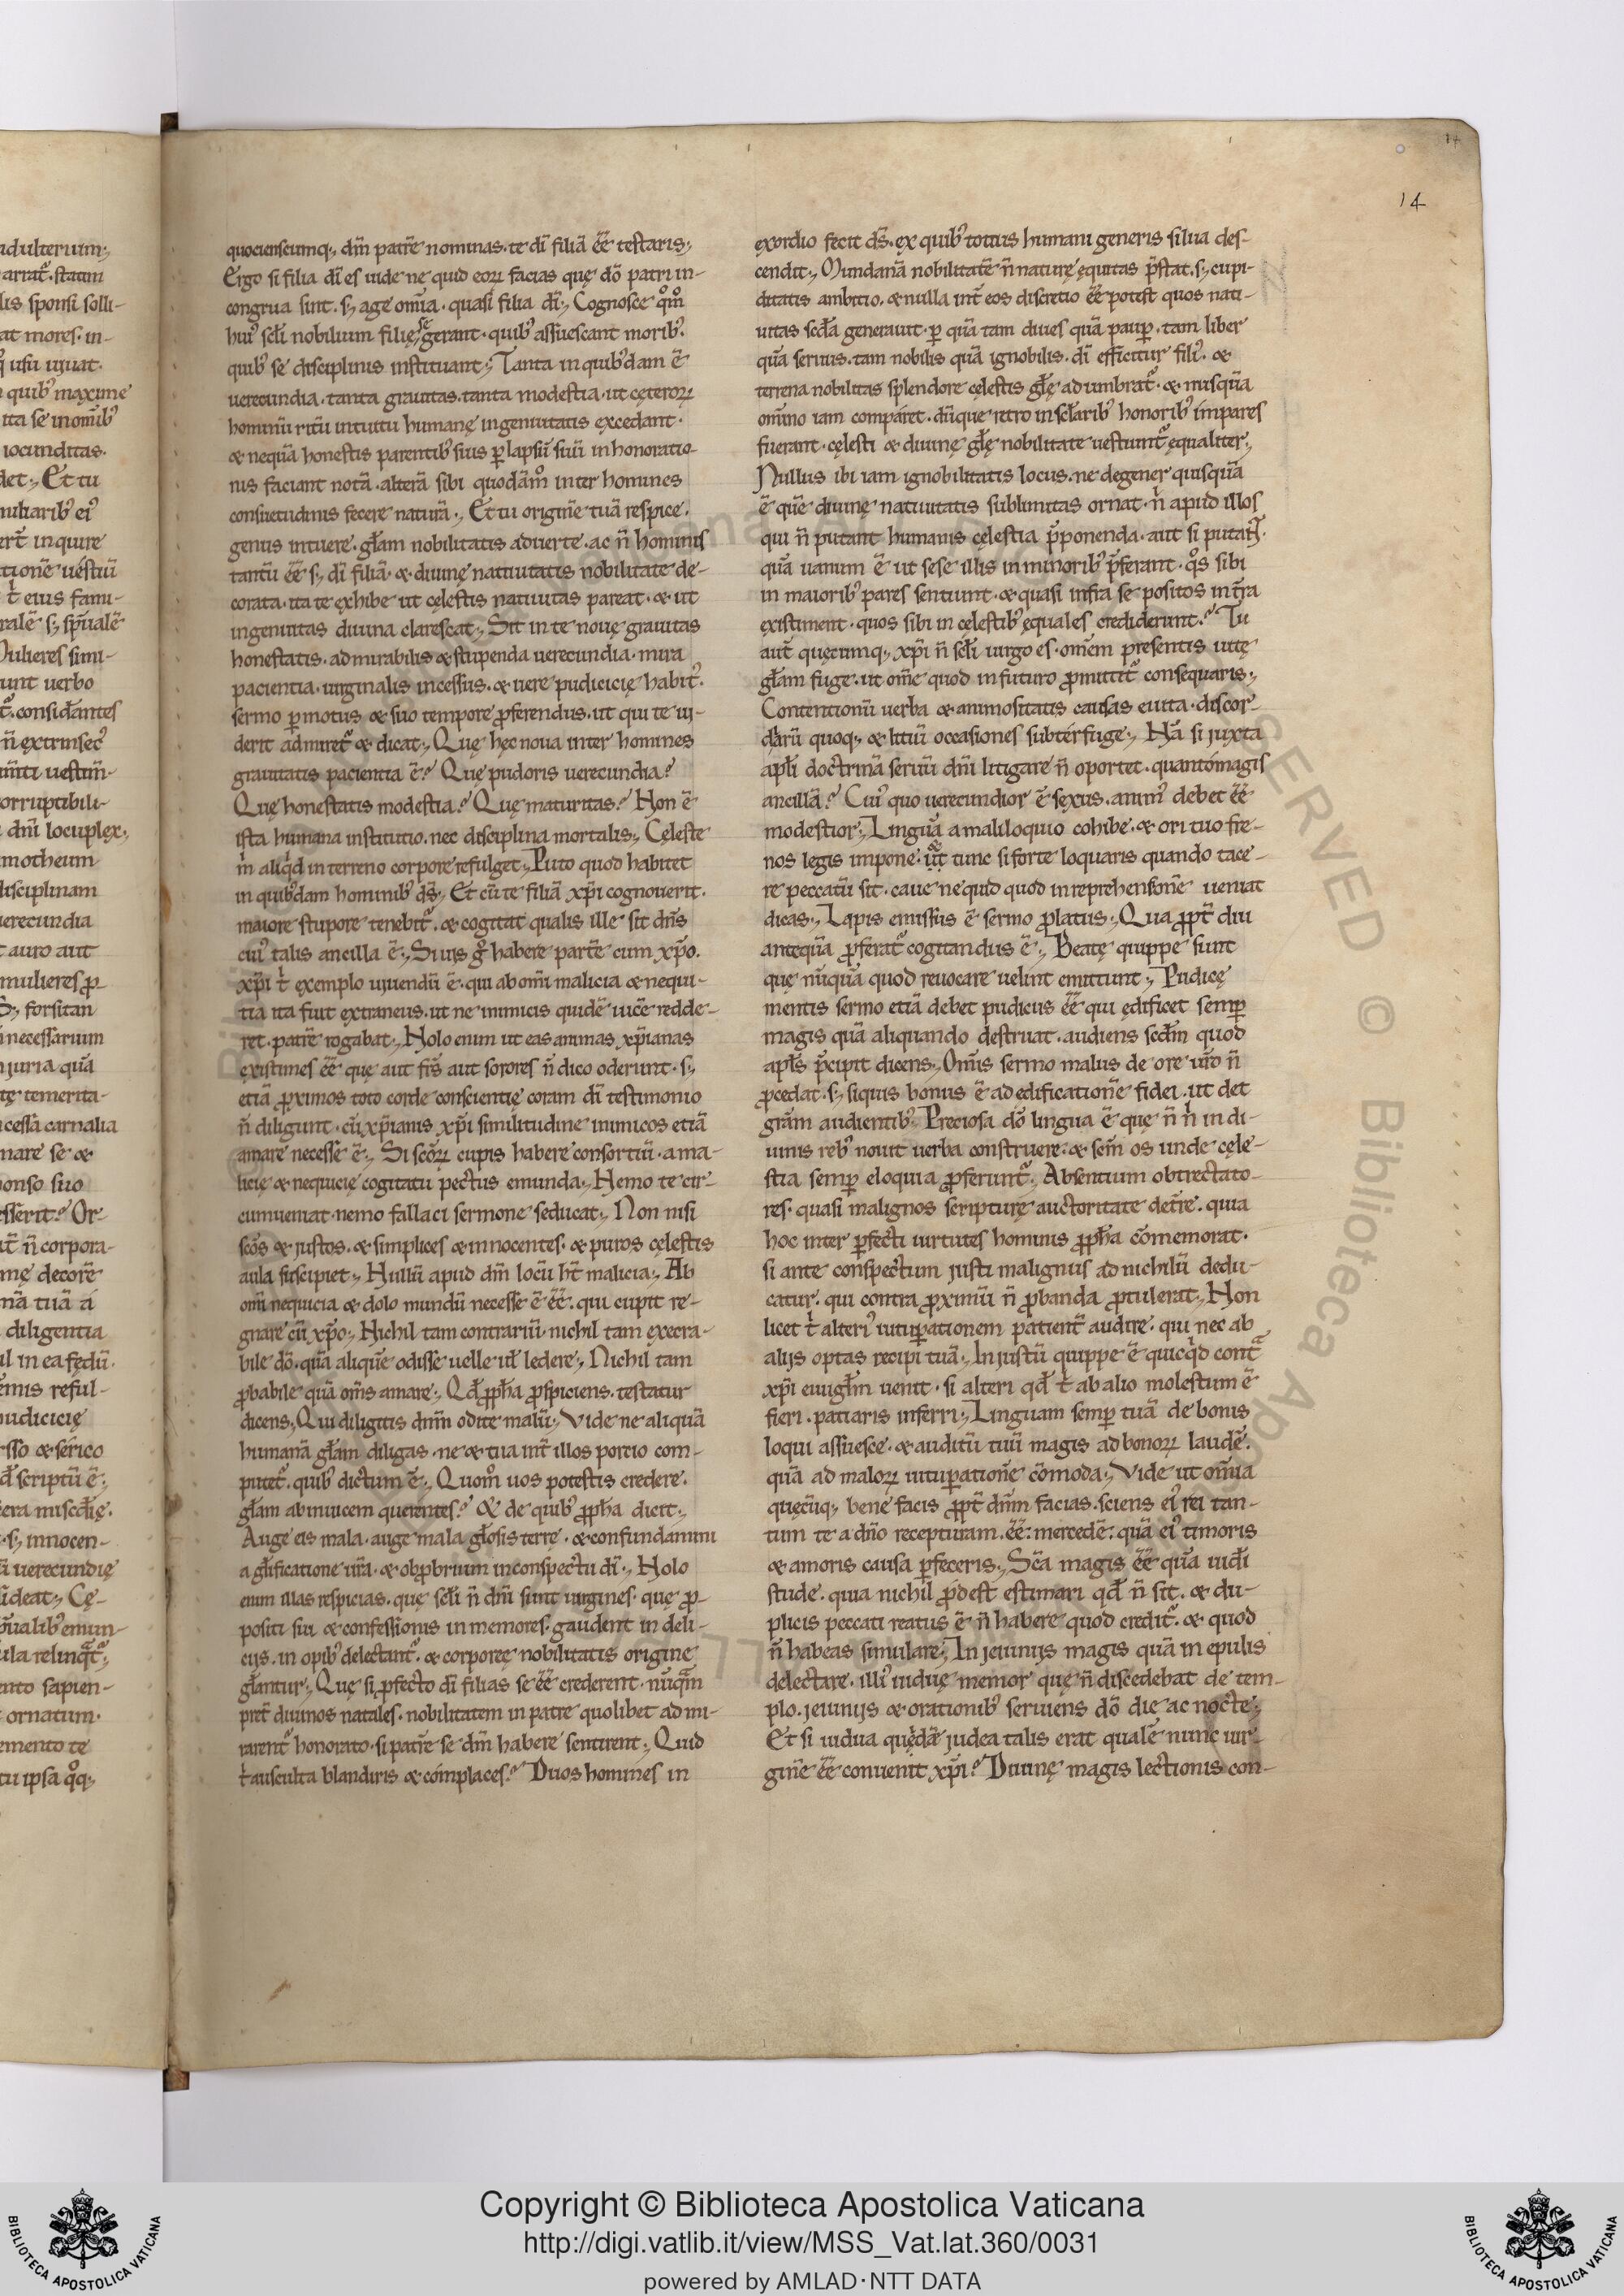 14
14
quocienscumq;, dm̄ patrē nominas. te dī filiā ee̅ testaris;
Ergo si filia dī es uide ne quid eoꝝ facias quę dō patri in-
congrua sint. s; age om̄ia. quasi filia dī; Cognosce qͦmͦ
huiꝰ scl̄i nobilium filię, se gerant. quibꝰ assuescant moribꝰ.
quibꝰ se disciplinis instituant; Tanta in quibꝰdam ē
uerecundia. tanta grauitas. tanta modestia. ut cęteroꝝ
hominū ritū intuitu humanę ingenuitatis excedant.
& nequā honestis parentibꝰ suis ꝑ lapsū suū inhonoratio-
nis faciant notā. alterā sibi quodāmͦ inter homines
consuetudinis fecere naturā; Et tu originē tuā respice.
genus intuere. gl̄am nobilitatis aduerte. ac n̄ hominis
tantū ee̅ s; dī filiā. & diuinę natiuitatis nobilitate de-
corata. ita te exhibe ut cęlestis natiuitas pareat. & ut
ingenuitas diuina clarescat; Sit in te nouę grauitas
honestatis. admirabilis & stupenda uerecundia. mira
pacientia. uirginalis incessus. & uere pudicicię habitꝰ.
sermo ꝑmotus & suo tempore ꝓferendus. ut qui te ui-
derit admiret᷑ & dicat; Quę hęc noua inter homines
grauitatis pacientia ē? Quę pudoris uerecundia?
Quę honestatis modestia? Quę maturitas? Non ē
ista humana institutio. nec disciplina mortalis; Cęleste
m̍ aliq̍d in terreno corpore refulget; Puto quod habitet
in quibꝰdam hominibꝰ ds̄; Et cū te filiā xp̄i cognouerit.
maiore stupore tenebit᷑. & cogitat qualis ille sit dn̄s
cuiꝰ talis ancilla ē; Si uis g̊ habere partē cum xp̄o.
xp̄i t̍ exemplo uiuendū ē. qui ab om̄i malicia & nequi-
tia ita fuit extraneus. ut ne inimicis quidē uicē redde-
ret. patrē rogabat; Nolo enim ut eas animas xp̄ianas
existimes ee̅ quę aut fr̄s aut sorores n̄ dico oderunt. s;
etiā ꝓximos toto corde conscientię coram dī testimonio
n̄ diligunt. cū xp̄ianis xp̄i similitudine inimicos etiā
amare necesse ē; Si scōꝝ cupis habere consortiū. a ma-
licię & nequicię cogitatu pectus emunda; Nemo te cir-
cumueniat. nemo fallaci sermone seducat; Non nisi
scōs & justos. & simplices & innocentes. & puros cęlestis
aula suscipiet; Nullū apud dm̄ locū ht̄ malicia; Ab
om̄i nequicia & dolo mundū necesse ē ee̅. qui cupit re-
gnare cū xp̄o; Nichil tam contrariū. nichil tam execra-
bile dō. quā aliquē odisse uelle ut̄ ledere; Nichil tam
ꝓbabile quā om̄s amare; Qd̄ ꝓph̄a ꝓspiciens. testatur
dicens; Qui diligitis dn̄m odite malū; Vide ne aliquā
humanā gl̄am diligas. ne & tua int̄ illos portio com-
putet᷑. quibꝰ dictum ē; Quomͦ uos potestis credere.
gl̄am ab inuicem querentes? & de quibꝰ ꝓph̄a dicit;
Auge eis mala. auge mala gl̄osis terrę. & confundamini
a gl̄ificatione ur̄a. & obꝓbrium in conspectu dī; Nolo
enim illas respicias. quę scl̄i n̄ dn̄i sunt uirgines. quę ꝓ-
positi sui & confessionis inmemores. gaudent in deli-
cijs. in opibꝰ delectant᷑. & corporeę nobilitatis origine
gl̄antur; Quę si ꝓfecto dī filias se ee̅ crederent. nūqͣm
pret̄ diuinos natales. nobilitatem in patre quolibet admi-
rarent᷑ honorato. si patrē se dm̄ habere sentirent; Quid
t̍ ausculta blandiris & cómplaces? Duos homines in
exordio fecit ds̄. ex quibꝰ totius humani generis silua des-
cendit; Mundanā nobilitatē n̄ naturę ęquitas p̄stat. s; cupi-
ditatis ambitio. & nulla int̄ eos discretio ee̅ potest quos nati-
uitas scd̄a generauit. ꝑ quā tam diues quā pauꝑ. tam liber
quā seruus. tam nobilis quā ignobilis. dī efficitur filiꝰ. &
terrena nobilitas splendore cęlestis gl̄ę adumbrat᷑. & nusquā
om̄ino iam compáret. dū que retro in scl̄aribꝰ honoribꝰ ímpares
fuerant. cęlesti & diuinę gl̄ę nobilitate uestiunt᷑ ęqualiter;
Nullus ibi iam ignobilitatis locus. ne degener quisquā
ē quē diuinę natiuitatis sublimitas ornat. n̍ apud illos
qui n̄ putant humanis cęlestia p̄ponenda. aut si putant.
quā uanum ē ut sese illis in minoribꝰ p̄ferant. qͦs sibi
in maioribꝰ pares sentiunt. & quasi infra se positos in tr̄a
existiment. quos sibi in cęlestibꝰ ęquales crediderunt? Tu
aut̄ quęcumq; xp̄i n̄ scl̄i uirgo es. om̄em presentis uitę
gl̄am fuge. ut om̄e quod in futuro ꝓmittit᷑ consequaris;
Contentionū uerba & animositatis causas euita. discor-
diarū quoq; & litiū occasiones subtérfuge; Nā si juxta
apl̄i doctrinā seruū dn̄i litigare n̄ oportet. quantómagis
ancillā? Cuiꝰ quo uerecundior ē sexus. animꝰ debet ee̅
modestior; Linguā a maliloquio cohibe. & ori tuo fre-
nos legis impone. ut tunc si forte loquaris quando tace-
re peccatū sit. caue ne quid quod in reprehensionē ueniat
dicas; Lapis emissus ē sermo ꝓlatus; Qua ꝓpt̄ diu
antequā ꝓferat᷑ cogitandus ē; Beatę quippe sunt
quę nūquā quod reuocare uelint emittunt; Pudicę
mentis sermo etiā debet pudicus ee̅ qui ędificet semꝑ
magis quā aliquando destruat. audiens scd̄m quod
apl̄s p̄cipit dicens; Om̄is sermo malus de ore ur̄o n̄
ꝓcedat. s; siquis bonus ē ad edificationē fidei. ut det
grām audientibꝰ; Preciosa dō lingua ē quę n̄ n̍ in di-
uinis rebꝰ nouit uerba construere. & scm̄ os unde cęle-
stia semꝑ eloquia ꝓferunt᷑; Absentium obtrectato-
res. quasi malignos scripturę auctoritate det̄re. quia
hoc inter ꝑfecti uirtutes hominis ꝓph̄a cōmemorat.
si ante conspectum justi malignus ad nichilū dedu-
catur. qui contra ꝓximū n̄ ꝓbanda ꝓtulerat; Non
licet t̍ alteriꝰ uituꝑationem patient᷑ audire. qui nec ab
alijs optas recipi tuā; Injustū quippe ē quicq̍d contͣ
xp̄i euugl̄m uenit. si alteri qd̄ t̍ ab alio molestum ē
fieri. patiaris inferri; Linguam semꝑ tuā de bonis
loqui assuesce. & auditū tuū magis ad bonoꝝ laudē.
quā ad maloꝝ uituꝑationē cōmoda; Vide ut om̄ia
quęcūq; bene facis ꝓpt̄ dn̄m facias. sciens eiꝰ rei tan-
tum te a dn̄o recepturam. ee̅: mercedē: quā eiꝰ timoris
& amoris causa ꝑfeceris; Scā magis ee̅ quā uid̄i
stude. quia nichil ꝓdest estimari qd̄ n̄ sit. & du-
plicis peccati reatus ē n̄ habere quod credit᷑. & quod
n̄ habeas simulare; In jeiunijs magis quā in epulis
delectare. illiꝰ uiduę memor quę n̄ discedebat de tem-
plo. jeiunijs & orationibꝰ seruiens dō die ac nocte;
Et si uidua quędā judea talis erat qualē nunc uir-
ginē ee̅ conuenit xp̄i? Diuinę magis lectionis con-
Copyright © Biblioteca Apostolica Vaticana
http://digi.vatlib.it/view/MSS_Vat.lat.360/0031
powered by AMLAD·NTT DATA
BIBLIOTECA APOSTOLICA VATICANA
BIBLIOTECA APOSTOLICA VATICANA